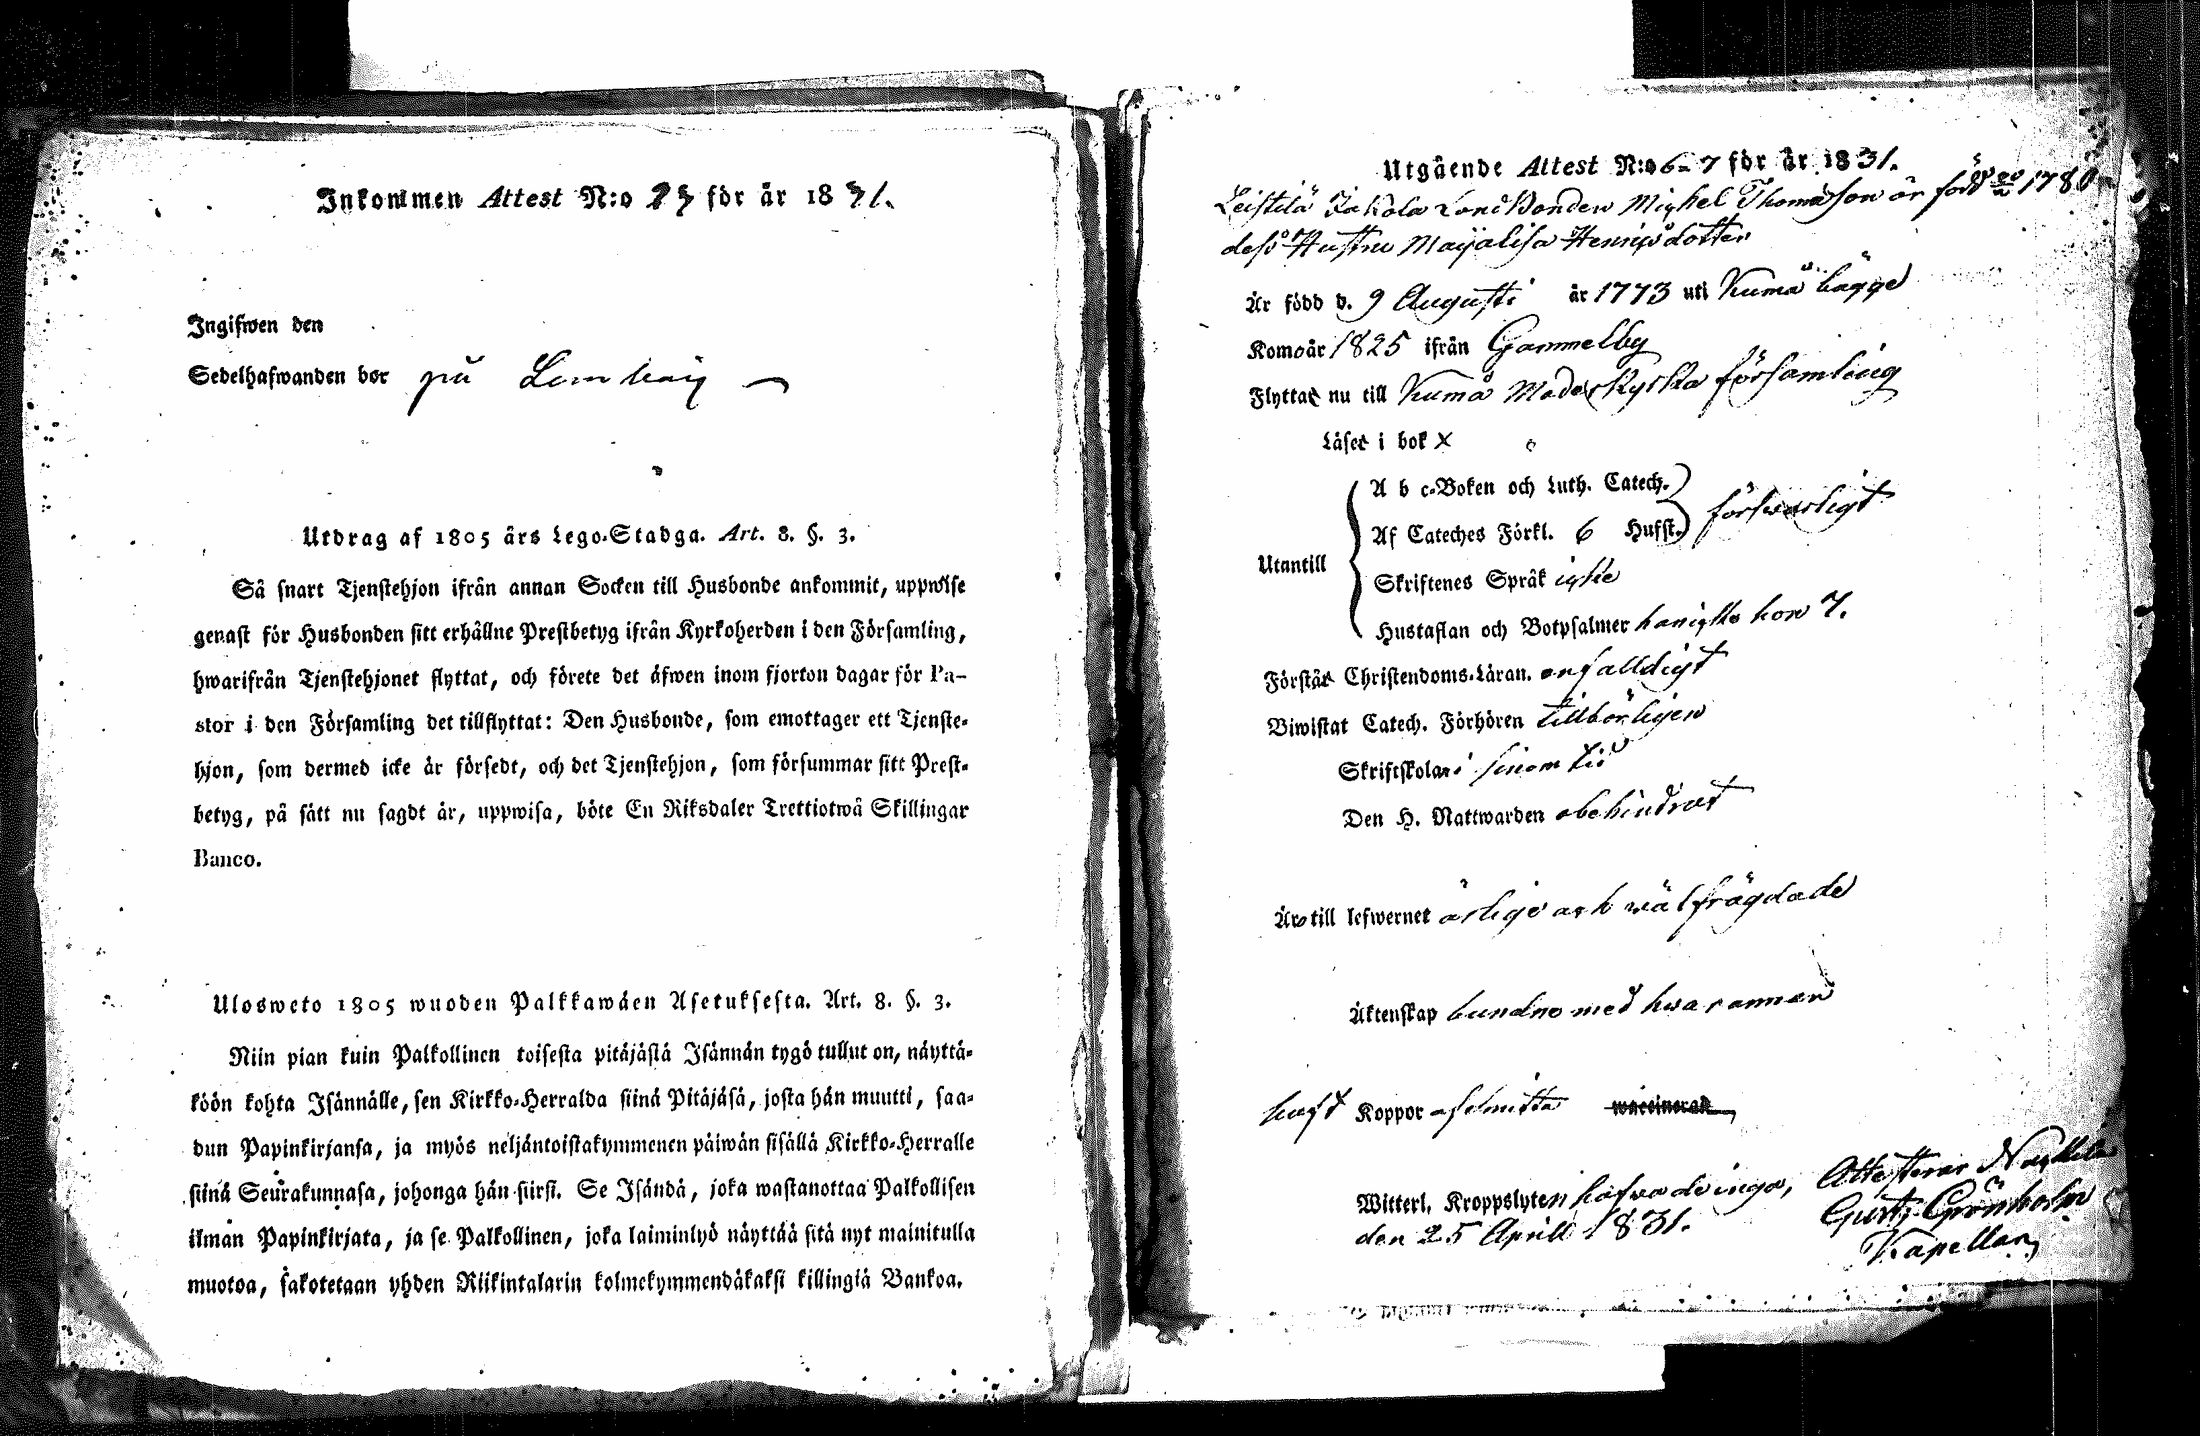 Inkommen Attest N:o 23 för år 1831.
Ingifwen den
Sedelhafwanden bor på
Utdrag af 1805 års Lego-Stadga. Art. 8. §. 3.
Så snart Tjenstehjon ifrån annan Socken till Husbonde ankommit, uppwise
genast för Husbonden sitt erhållne Prestbetyg ifrån Kyrkoherden i den Församling,
hwarifrån Tjenstehjonet flyttat, och förete det äfwen inom fjorton dagar för Pa-
stor i den Församling det tillflyttat: Den Husbonde, som emottager ett Tjenste-
hjon, som dermed icke är försedt, och det Tjenstehjon, som försummar sitt Prest-
betyg, på sätt nu sagdt är, uppwisa, böte En Riksdaler Trettiotwå Skillingar
Banco.
Ulosweto 1805 wuoden Palkkawäen Asetuksesta. Art. 8. §. 3.
Niin pian kuin Palkollinen toisesta pitäjästä Isännän tygö tullut on, näyttä-
köön kohta Isännälle, sen Kirkko-Herralda siinä Pitäjäsä, josta hän muutti, saa-
dun Papinkirjansa, ja myös neljäntoistakymmenen päiwän sisällä Kirkko-Herralle
siinä Seurakunnasa, johonga hän siirsi. Se Isändä, joka wastanottaa Palkollisen
ilman Papinkirjata, ja se Palkollinen, joka laiminlyö näyttää sitä nyt mainitulla
muotoa, sakotetaan yhden Riikintalarin kolmekymmendäkaksi killingiä Bankoa.
Utgående Attest N:o 6-7 för år 1831.
Leistilä Jakola Landbonden Michel Thomasson är född 1780
dess Hustru Majalisa Henricsdotter
Är född d. 9 Augusti år 1773 uti Kumå bägge
Komo år 1825 ifrån Gammelby
Flyttar nu till Kumå Moderkyrko församling
Läser i bok x
A b c-Boken och Luth. Catech.
Af Cateches Förkl. 6 Hufst. förswarligt
Utantill
Skriftenes Språk icke
Hustaflan och Botpsalmer han icke hon 7.
Förstår Christendoms-Läran. enfalldigt
Biwistat Catech. Förhören tillbörligen
Skriftskolan i sinom tid
Den H. Nattwarden obehindrat
Äro till lefwernet ärlige och wälfrägdade
Äktenskap bundne med hwarannan
haft Koppor osmitta waccinerad
Witterl. Kroppslyten hafwa de inga, Attesterar Nackila
den 25 Aprill 1831. Gust. Grönholm
Kapellan